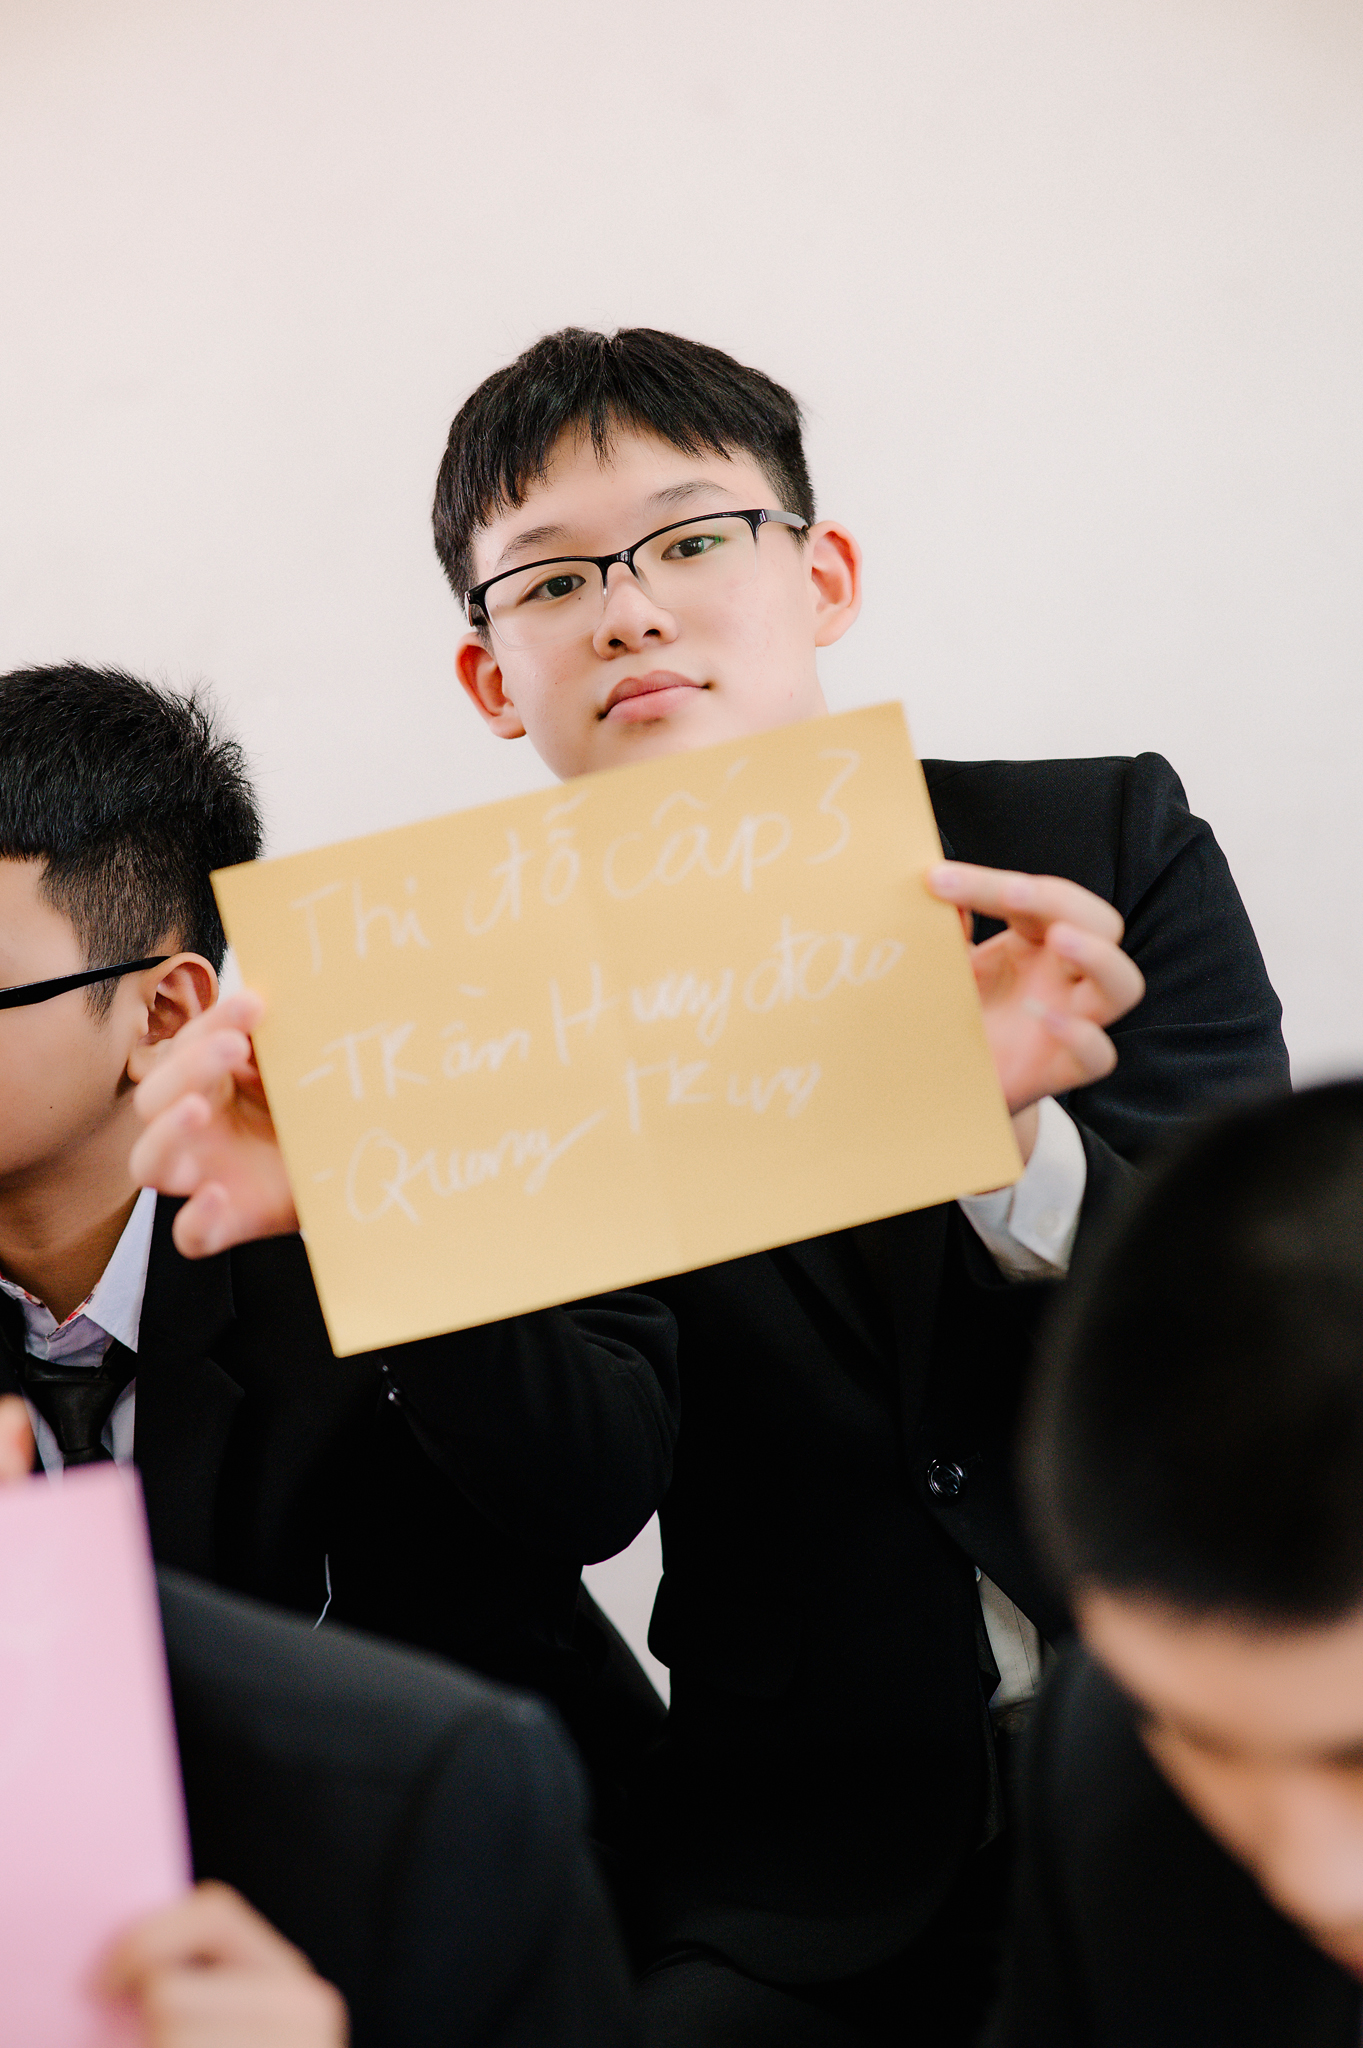 Thi đỗ cấp 3
-TRần Hưng đạo
-Quang TRung